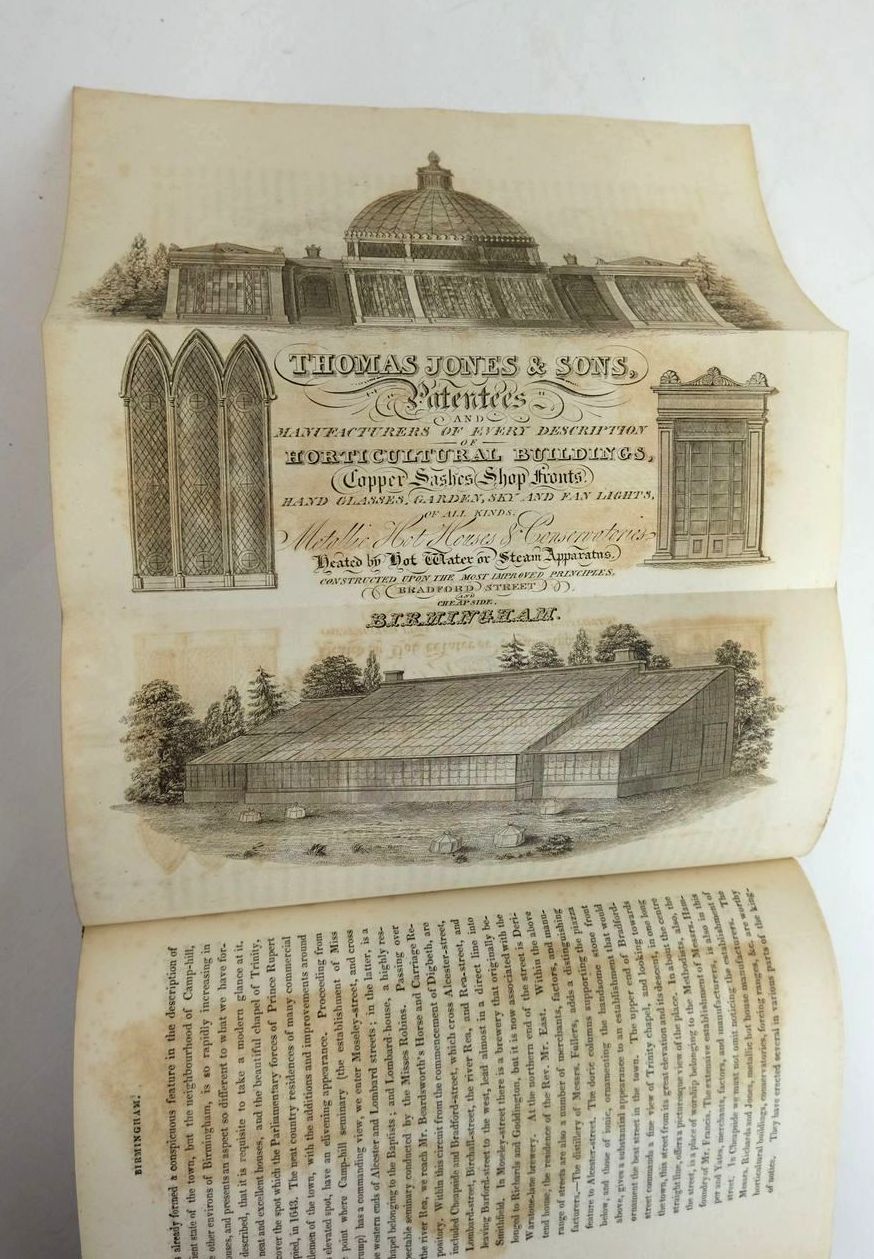 THOMAS JONES & SONS,
Patentees
AND
MANUFACTURERS OF EVERY DESCRIPTION
OF
HORTICULTURAL BUILDINGS,
Copper Sashes Shop Fronts.
HAND GLASSES, GARDEN, SKY AND FAN LIGHTS,
OF ALL KINDS.
Metallic Hot Houses & Conservatories
Heated by Hot Water or Steam Apparatus,
CONSTRUCTED UPON THE MOST IMPROVED PRINCIPLES,
BRADFORD STREET
AND
CHEAPSIDE,
BIRMINGHAM.
BIRMINGHAM.
already formed a conspicuous feature in the description of
ient state of the town, but the neighbourhood of Camp-hill,
other environs of Birmingham, is so rapidly increasing in
ouses, and presents an aspect so different to what we have for-
described, that it is requisite to take a modern glance at it.
neat and excellent houses, and the beautiful chapel of Trinity,
cover the spot which the Parliamentary forces of Prince Rupert
pied, in 1643. The neat country residences of many commercial
lemen of the town, with the additions and improvements around
elevated spot, have an enlivening appearance. Proceeding from
point where Camp-hill seminary (the establishment of Miss
ump) has a commanding view, we enter Moseley-street, and cross
western ends of Alcester and Lombard streets; in the latter, is a
hapel belonging to the Baptists; and Lombard-house, a highly res-
pectable seminary conducted by the Misses Robins. Passing over
the river Rea, we reach Mr. Beardsworth's Horse and Carriage Re-
pository. Within this circuit from the commencement of Digbeth, are
included Cheapside and Bradford-street, which cross Alcester-street,
Lombard-street, Birchall-street, the river Rea, and Rea-street, and
leaving Barford-street to the west, lead almost in a direct line into
Smithfield. In Moseley-street there is a brewery that originally be-
longed to Richards and Goddington, but it is now associated with the
Warstone-lane brewery. At the northern end of the street is Deri-
tend house, the residence of the Rev. Mr. East. Within the above
range of streets are also a number of merchants, factors, and manu-
facturers.—The distillery of Messrs. Fullers, adds a distinguishing
feature to Alcester-street. The doric columns supporting the piazza
below, and those of ionic, ornamenting the handsome stone front
above, gives a substantial appearance to an establishment that would
ornament the best street in the town. The upper end of Bradford-
street commands a fine view of Trinity chapel, and looking towards
the town, this street from its great elevation and its descent, in one long
straight line, offers a picturesque view of the place. In about the centre
the street, is a place of worship belonging to the Methodists, also, the
foundry of Mr. Francis. The extensive establishment of Messrs. Ham-
per and Yates, merchants, factors, and manufacturers, is also in this
street. In Cheapside we must not omit noticing the establishment of
Messrs. Richards and Jones, metallic hot house manufacturers. The
horticultural buildings, conservatories, forcing ranges, &c. are worthy
of notice. They have erected several in various parts of the king-